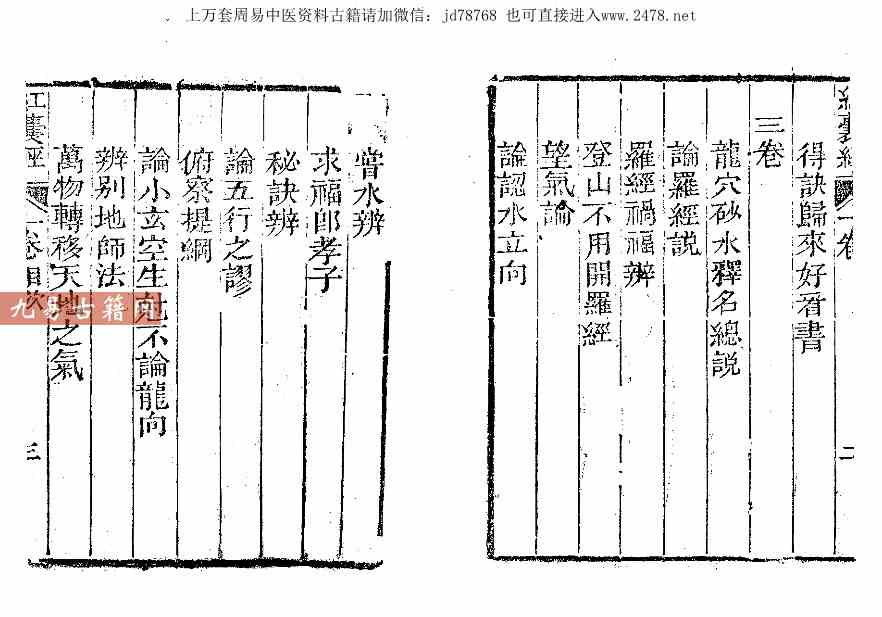 上万套周易中医资料古籍请加微信：jd78768 也可直接进入www.2478.net
一卷
二
得訣歸來好看書
三卷
龍穴砂水釋名總說
論羅經說
羅經禍福辨
登山不用開羅經
望氣論
論認水立向
嘗水辨
求福郎孝子
秘訣辨
論五行之謬
俯察提綱
論小玄空生尅不論龍向
辨别地師法
萬物轉移天地之氣
紅囊經
一卷
目次
三
九易古籍网